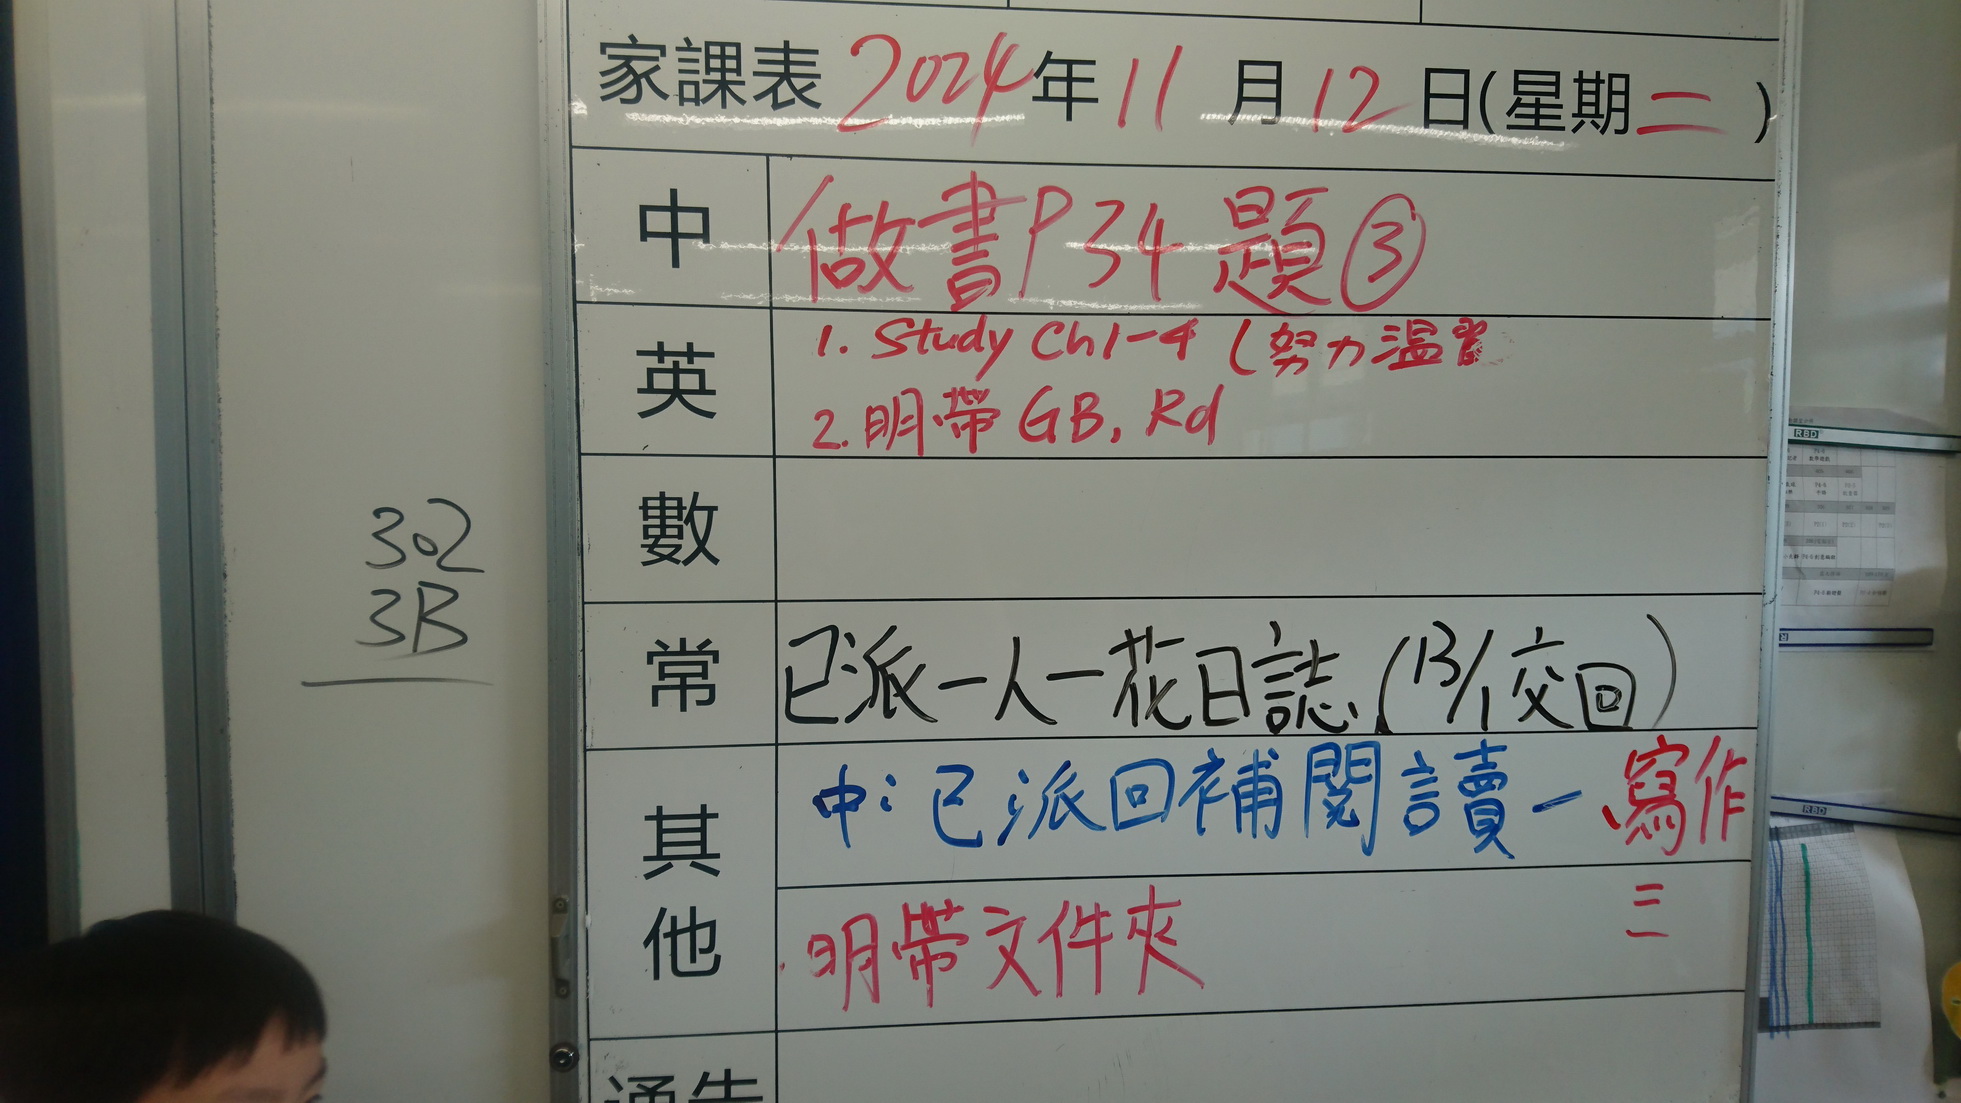 家課表 2024年 11 月 12 日(星期二 )
中 做書P34 題③
英 1. Study Ch1-4 (努力温習
2. 明帶 GB, Rd
數
常 已派一人一花日誌 (13/1交回)
其他 中:已派回補閱讀一 寫作
三
明帶文件夾
通告
302
3B
RBD
RBD